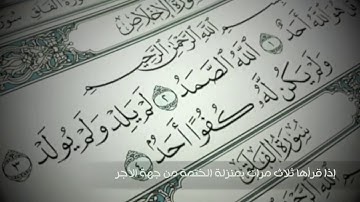 سورة الإخلاص
سورة الفلق
بسم الله الرحمن الرحيم
قل هو الله أحد ١
الله الصمد ٢ لم يلد ولم يولد ٣
ولم يكن له كفوا أحد ٤
سورة الفلق
إذا قرأها ثلاث مرات بمنزلة الختمة من جهة الأجر